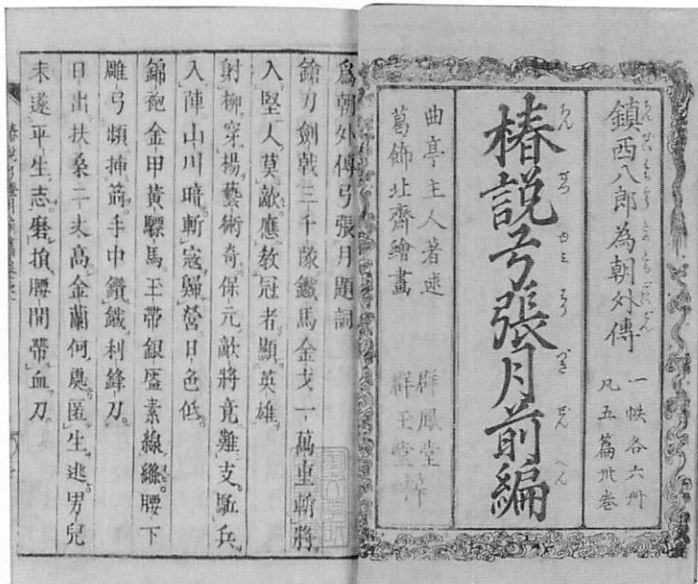 鎮西八郎為朝外傳
一帙各六冊
凡五篇卅巻
椿説弓張月前編
ちん せつ ゆみ はり づき ぜん へん
曲亭主人著述
葛飾北齋繪畫
群鳳堂
群玉堂梓
為朝外傳弓張月題詞
鎗刀劍戟三千隊鐵馬金戈一萬重斬將
入堅人莫敵應教冠者顯英雄
射柳穿楊藝術奇保元敵將竟難支驅兵
入陣山川暗斬寇歸營日色低
錦袍金甲黃驃馬玉帶銀盔素線縧腰下
雕弓頻挿箭手中鑽鐵利鋒刀
日出扶桑二丈高金蘭何處匿生逃男兒
未遂平生志磨損腰間帶血刀